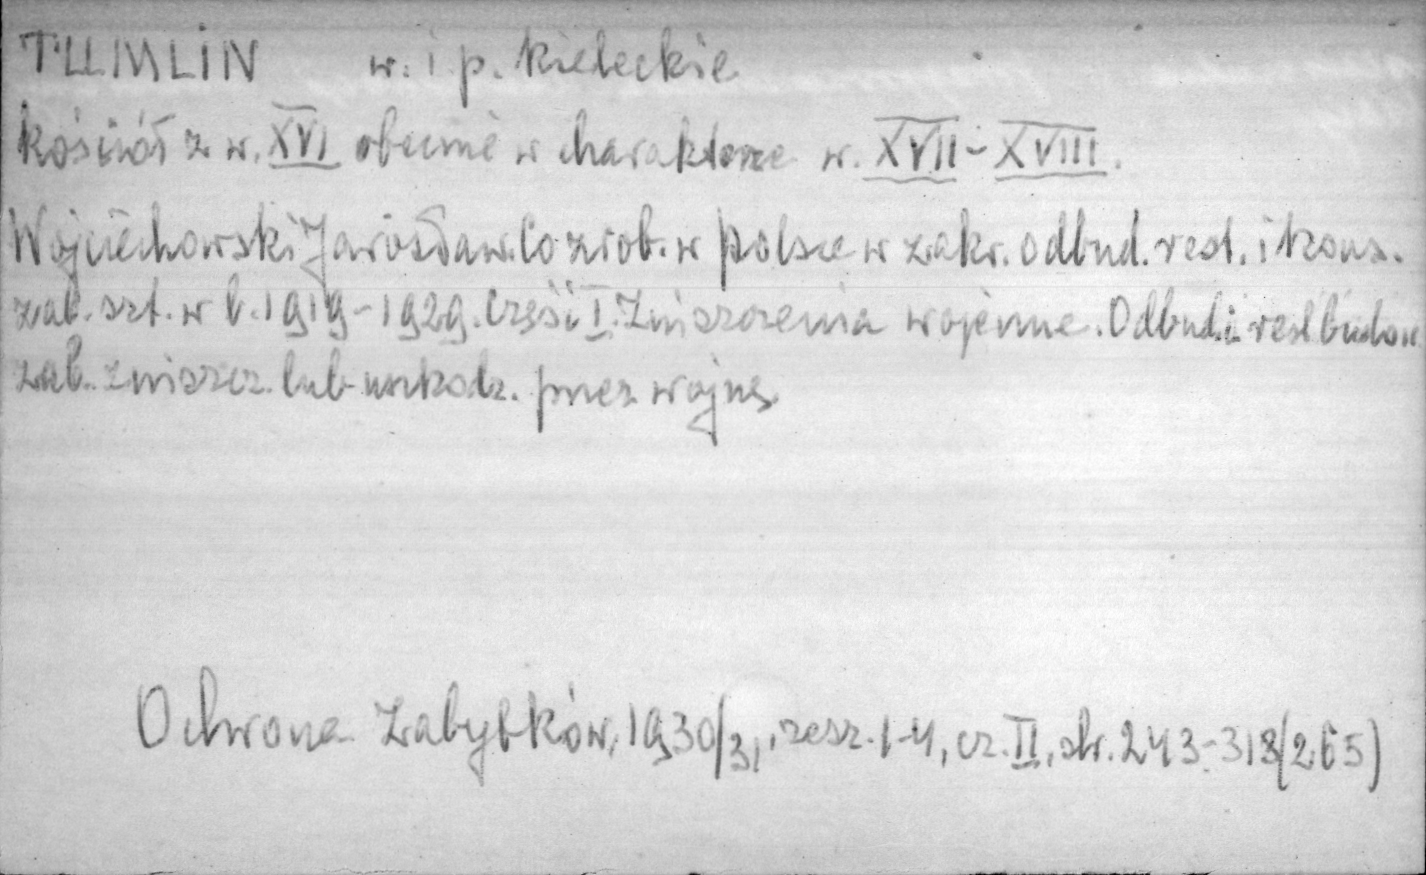 TUMLIN w. i p. Kieleckie
Kościół z w. XVI obecnie w charakterze w. XVII-XVIII.
Wojciechowski Jarosław. Co zrob. w Polsce w zakr. odbud. rest. i kons.
zab. szt. w l. 1919-1929. Część I. Zniszczenia wojenne. Odbud. i rest budow
zab. zniszcz. lub uszkodz. przez wojnę
Ochrona Zabytków, 1930/31, zesz. 1-4, cz. II, str. 243-318 (265)